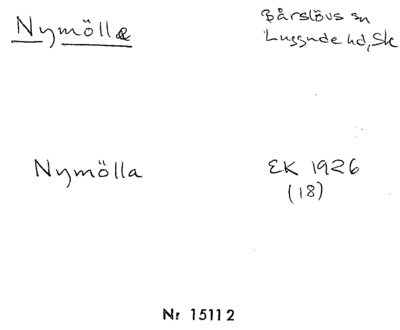 Nymölla
Bårslövs sn
Luggude hd, Sk
Nymölla
EK 1926
(18)
Nr 15112